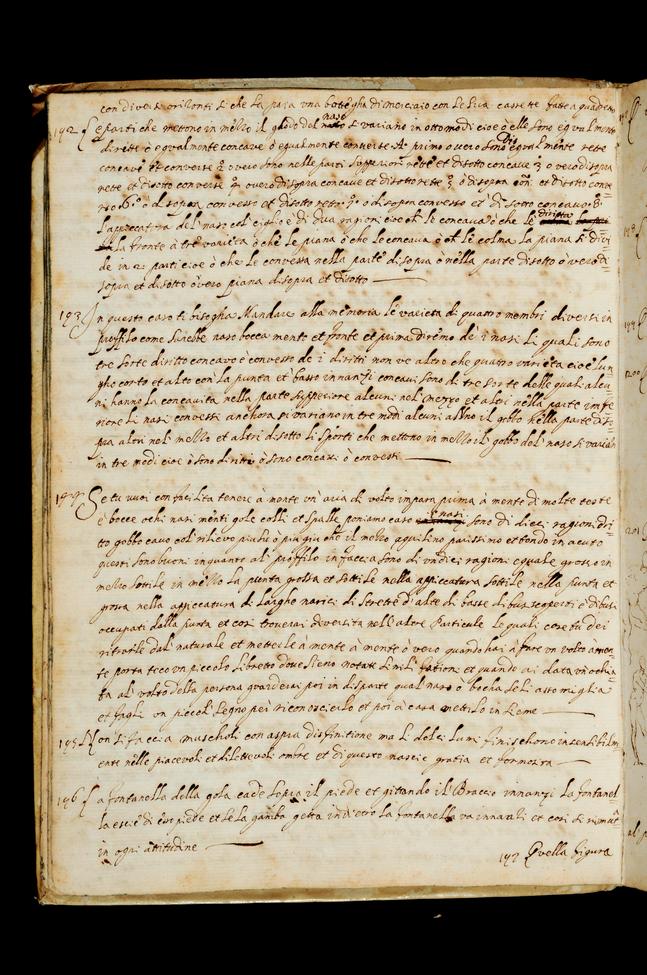 con diversi orizonti si che la paia una bottegha di merciaio con le sua cassette fatte a quadretti
192 Le parti che mettono in mezzo il gobbo del naso si variano in otto modi cioè ò elle sono egualmente
dirette ò egualmente concave ò egualmente converse Aº primo overo sono egualmente rette
concave et converse 2º overo sono nelle parti superiori rette et disotto concave 3 overo disopra
rette et disotto converse 4 overo disopra concave et disotto rette 5 ò disopra con. et disotto conve=
rse 6º ò disopra converso et disotto rette 7º ò disopra converso et disotto concavo 8
L'apiccatura del naso col ciglio è di dua ragioni cioè ch' le concava ò che le diritta
la fronte à tre varieta ò ch'è le piana ò che le concava ò ch' le colma la piana si divi=
de in 2 parti cioè ò che le conversa nella parte disopra ò nella parte disotto ò vero di=
sopra et disotto ò vero piana disopra et disotto
193 In questo caso ti bisogha Mandare alla memoria le varieta di quattro membri diversi in
proffilo come sarebbe naso bocca mento et fronte et prima diremo de i nasi li quali sono
tre sorte diritto concavo è converso de i diritti non ve altro che quattro varieta cioè lun
gho corto et alto con la punta et basso innanzi concavi sono di tre sorte delle quali alcu=
ni hanno la concavita nella parte superiore alcuni nel mezzo et alcri nella parte infe
riore li nasi converssi anchora si variano in tre modi alcuni anno il gobbo nella parte diso=
pra alcri nel mezzo et altri disotto li sporti che mettono in mezzo il gobbo del naso si variano
in tre modi cioè ò sono diritti ò sono concavi è conversi
194 Se tu vuoi con facilita tenere à mente un' aria di volto impara prima à mente di molte teste
è bocce ochi nasi menti gole colli et spalle poniamo caso i nasi sono di dieci ragioni dri=
tto gobbo cavo col rilievo più su ò più giu che il mezzo aquilino parissimo et tondo in acuto
questi sono buoni inquanto al proffilo in faccia sono di undici ragioni equale grosso in
mezzo sottile in mezzo la punta grossa et sottile nella appiccatura sottile nella punta et
grossa nella appiccatura di Larghe narici di strette d'alte di basse di busi scoperti è di busi
occupati dalla punta et così troverai diversita nell'altre Particule Le quali cose tu dei
ritrarle dal' naturale et metterle à mente ò vero quando hai à fare un volto à men=
te porta teco un piccolo Libretto dove sieno notate simili fatione et quando ai data un ochia
ta al volto della persona guarderai poi in disparte qual naso ò bocha se li assomiglia
et fagli un piccol' segno per riconoscierlo et poi à casa mettilo in sieme
195 Non si faccia muscholi con aspra disfinitione ma li dolci Lumi finischono insensibilm
ente nelle piacevoli et dilettevoli ombre et di questo nascie gratia et formosita
196 La fontanella della gola cade sopra il piede et gitando il Braccio innanzi la fontanel=
la esce di esso piede et se la gamba getta indietro la fontanella va innanzi et così si rimuta
in ogni attitudine
197 Quella figura